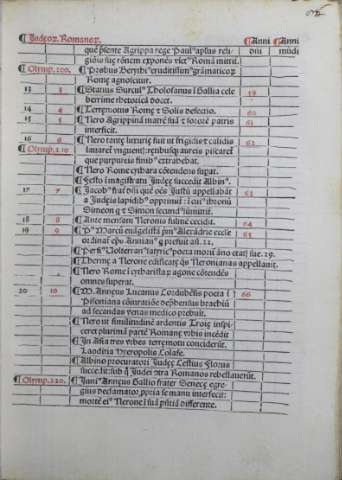 ¶ Judeoꝝ. Romanoꝝ. ¶ Anni ¶ Anni
dñi mūdi
quē pſente Agrippa rege Paulꝰ apl̄us reli
gionis ſuę
¶ Olymp. ¶ Probus Berythiꝰ eruditiſſimꝰ grāmaticoꝝ
Rome agnoſcitur.
13 3 ¶ Statius Surculꝰ Tholoſanus ī Gallia cele
berrime rhetoricā docet. 59
14 4 ¶ Terremotus Rome ⁊ Solis defectio. 60
15 5 ¶ Nero Agrippinā matrē ſuā ⁊ ſororē patris 61
interficit.
16 6 ¶ Nero tantę luxurię fuit ut frigidis ⁊ calidis 62
¶ Olymp. lauaret unguentis; retibusqȝ aureis piſcaret
que purpureis funibꝰ extrahebat.
¶ Nero Rome cythara cōtendens ſuperat.
¶ Feſto ī magiſtratu Judeę ſuccedit Albinꝰ.
17 7 ¶ Jacobꝰ frat̄ dñi quē oēs Juſtū appellabāt 63
a Judeis lapidibꝰ opprimit̄: ī cuiꝰ thronū
Simeon q ⁊ Simon ſecundꝰ ſumit.
18 8 ¶ Ante menſam Neronis fulmē cecidit. 64
19 9 ¶ Pꝰ Marcū euāgeliſtā pmꝰ Alexādrie eccleſię 65
ordinat̄ epꝰ Annianꝰ q prefuit añ. 22.
¶ Perſiꝰ Volterranꝰ ſatyricꝰ poeta morit̄ āno etatꝭ ſue. 29.
¶ Thermę a Nerone edificatę quas Neronianas appellauit.
¶ Nero Rome ī cythariſta ⁊ agone cōtendēs
omnes ſuperat.
20 10 ¶ M. Annęus Lucanus Cordubēſis poeta ī 66
Piſoniana cōiuratiōe depręhenſus brachiū
ad ſecandas venas medico prebuit.
¶ Nero ut ſimilitudinē ardentis Troię inſpi
ceret plurimā partē Romanę vrbis incēdit
¶ In Aſia tres vrbes terręmotu conciderūt.
Laoditia Hieropolis Coloſę.
¶ Albino procuratori Judeę Ceſtius Florus
ſuccedit: ſub q̄ Judei cōtra Romanos rebellauerūt.
¶ Olymp. ¶ Juniꝰ Annęus Gallio frater Senecę egre
gius declamator ppria ſe manu interfecit:
mortē eī Nerone ī ſuā pñtiā differente.